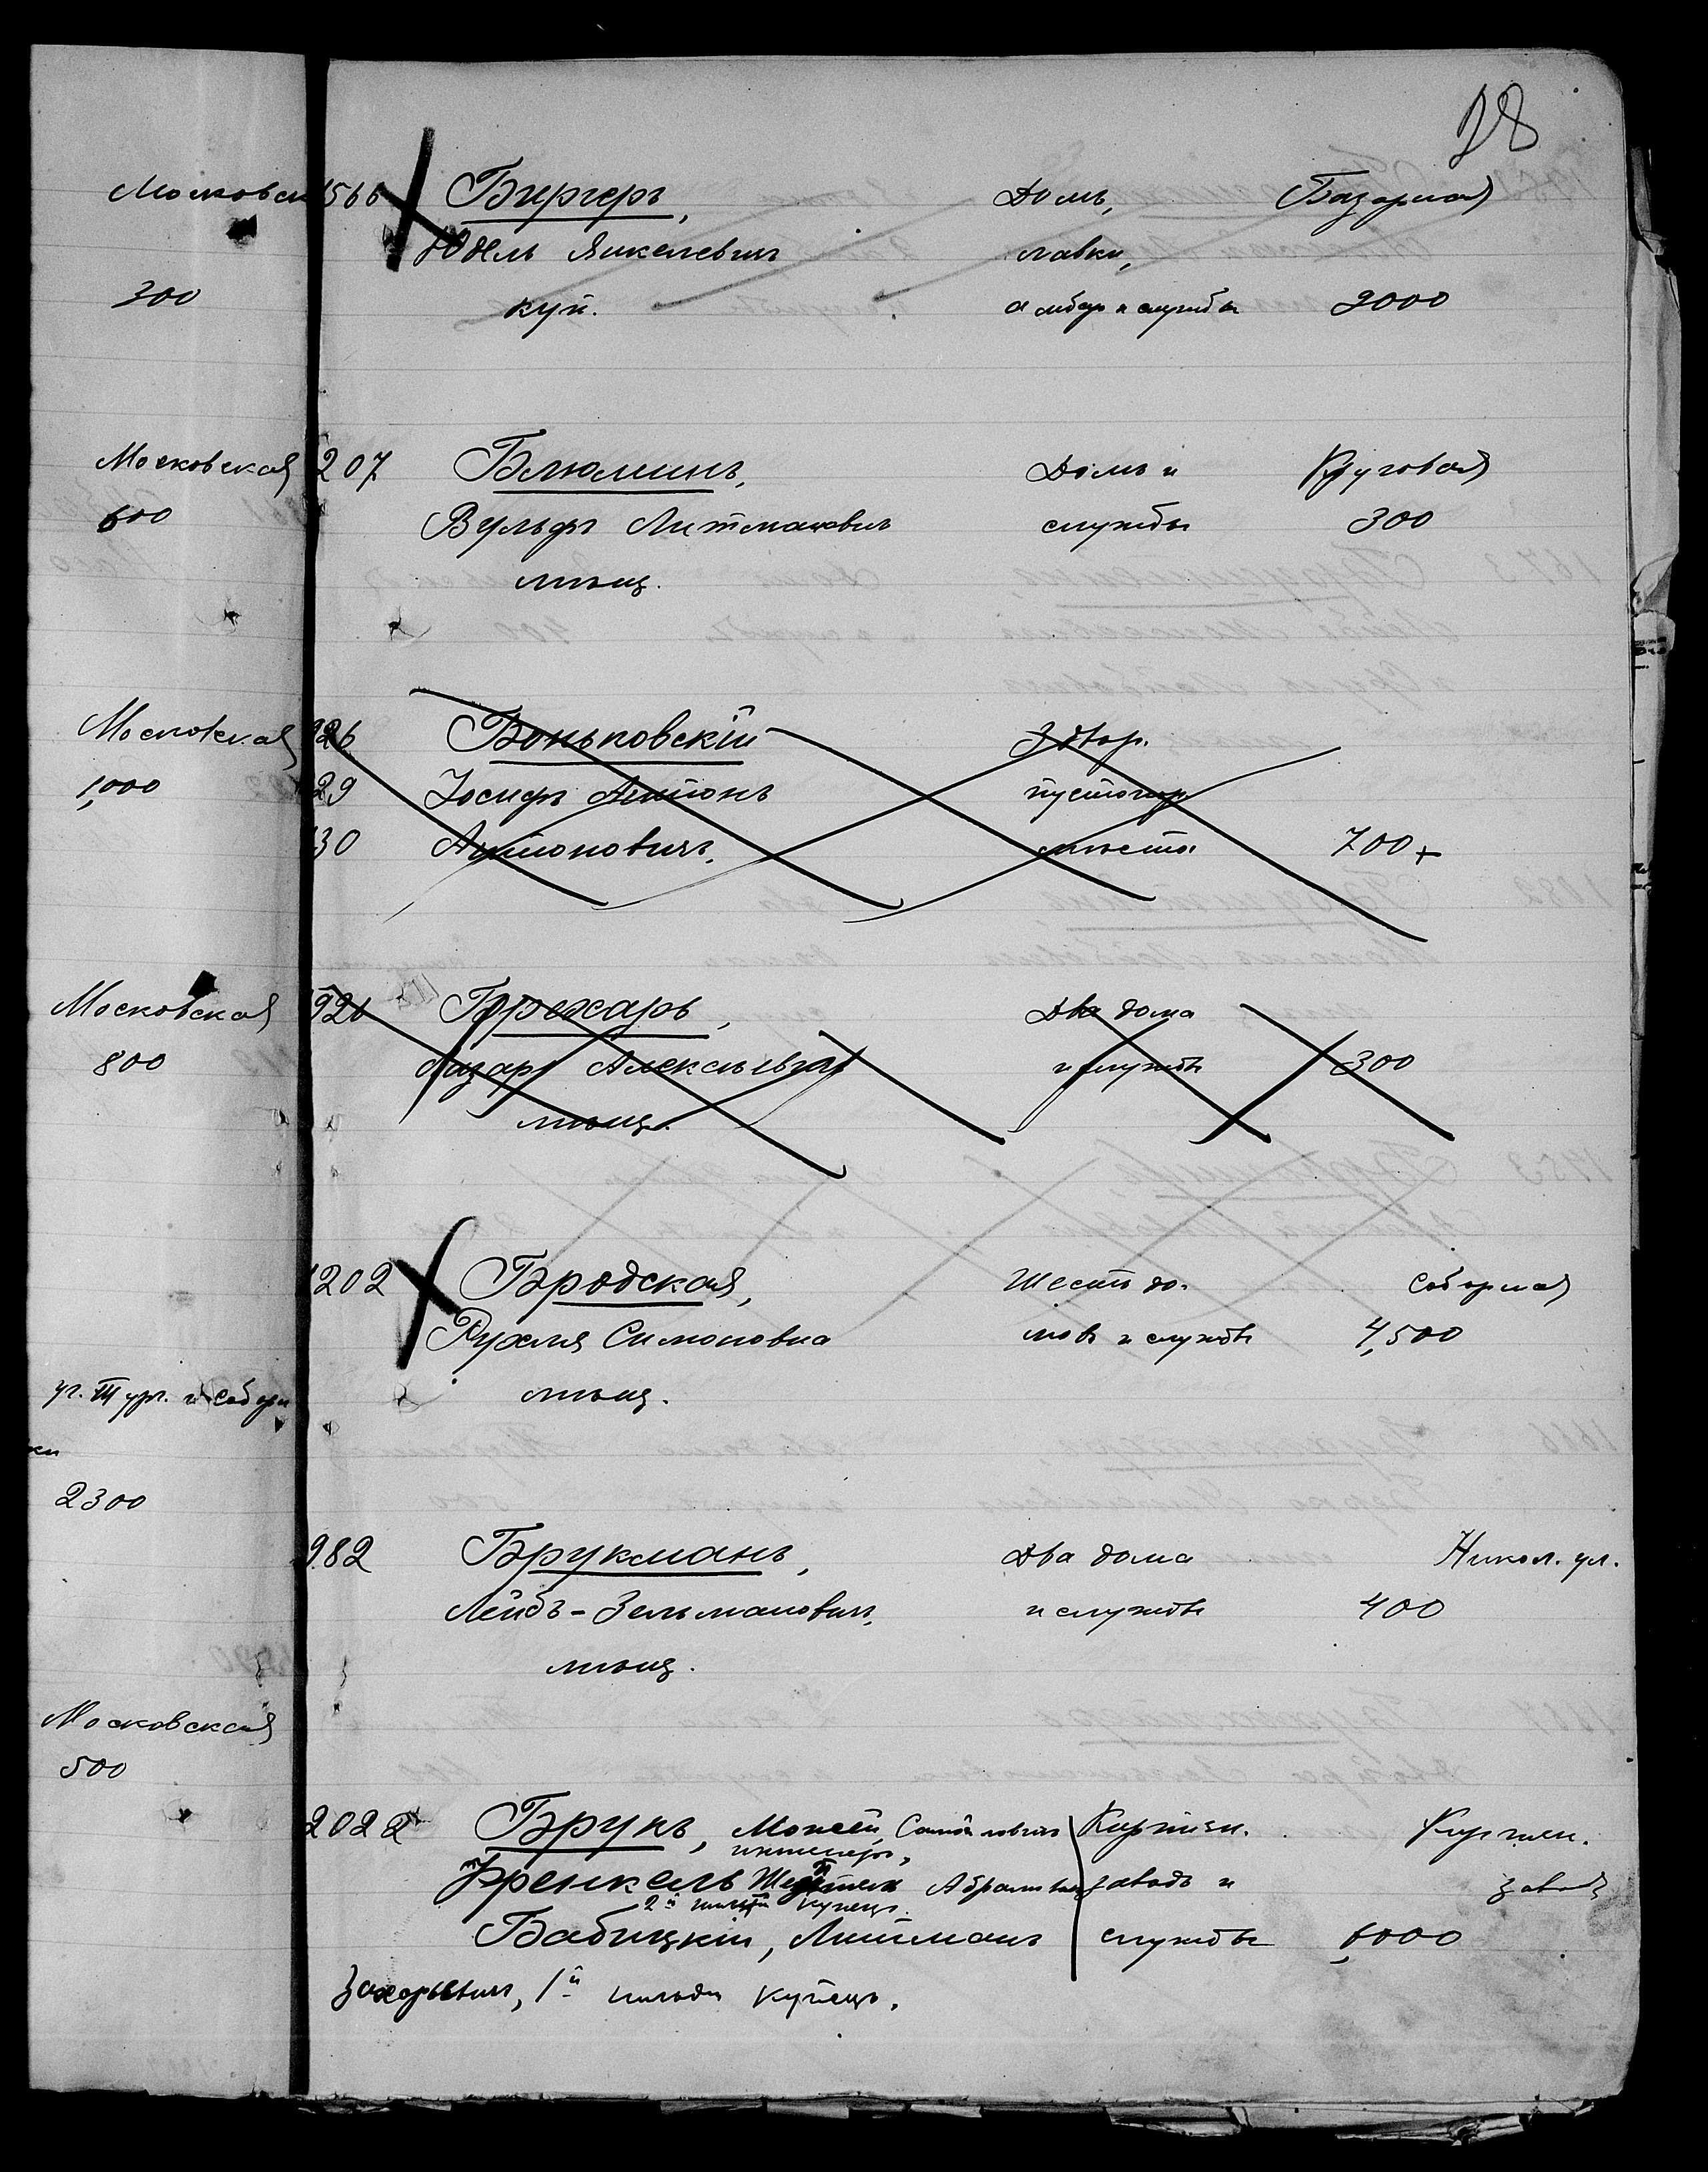 38
Московск
300
Московская
600
Московская
1,000
Московская
800
уг. Тург. и Соборн
ки
2300
Московская
500
1566 Биргеръ, Домъ, Базарная
Юдель Янкелевичъ лавки,
куп. амбар и службы 2000
207 Блюминъ, Домъ и Круговая
Вульфъ Литмановичъ службы 300
мѣщ.
926 Боньковскій 3 двор.
29 Іосифъ Антонъ пустопор.
30 Антоновичъ, мѣста 700
1921 Брежаръ, Два дома
Лазарь Алексѣевичъ и службы 300
мѣщ.
1202 Бродская, Шесть до- Соборная
Рухля Симоновна мовъ и службы 4,500
мѣщ.
982 Брукманъ, Два дома Никол. ул.
Лейбъ-Зельмановичъ, и службы 400
мѣщ.
2022 Брукъ, Моисей Самойловичъ Кирпичн. Кирпичн.
инженеръ,
Френкель Абрамовичъ заводъ и заводъ
2й гильдіи купецъ.
Бабицкій, Литманъ службы 6000
Захарьевичъ, 1й гильдіи купецъ.